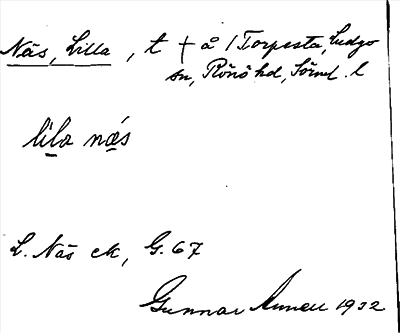 Näs, Lilla, t † å / Torpesta, Ludgo
sn, Rönö hd, Sörml. l
lila näs
L. Näs ek, G. 67
Gunnar 1932